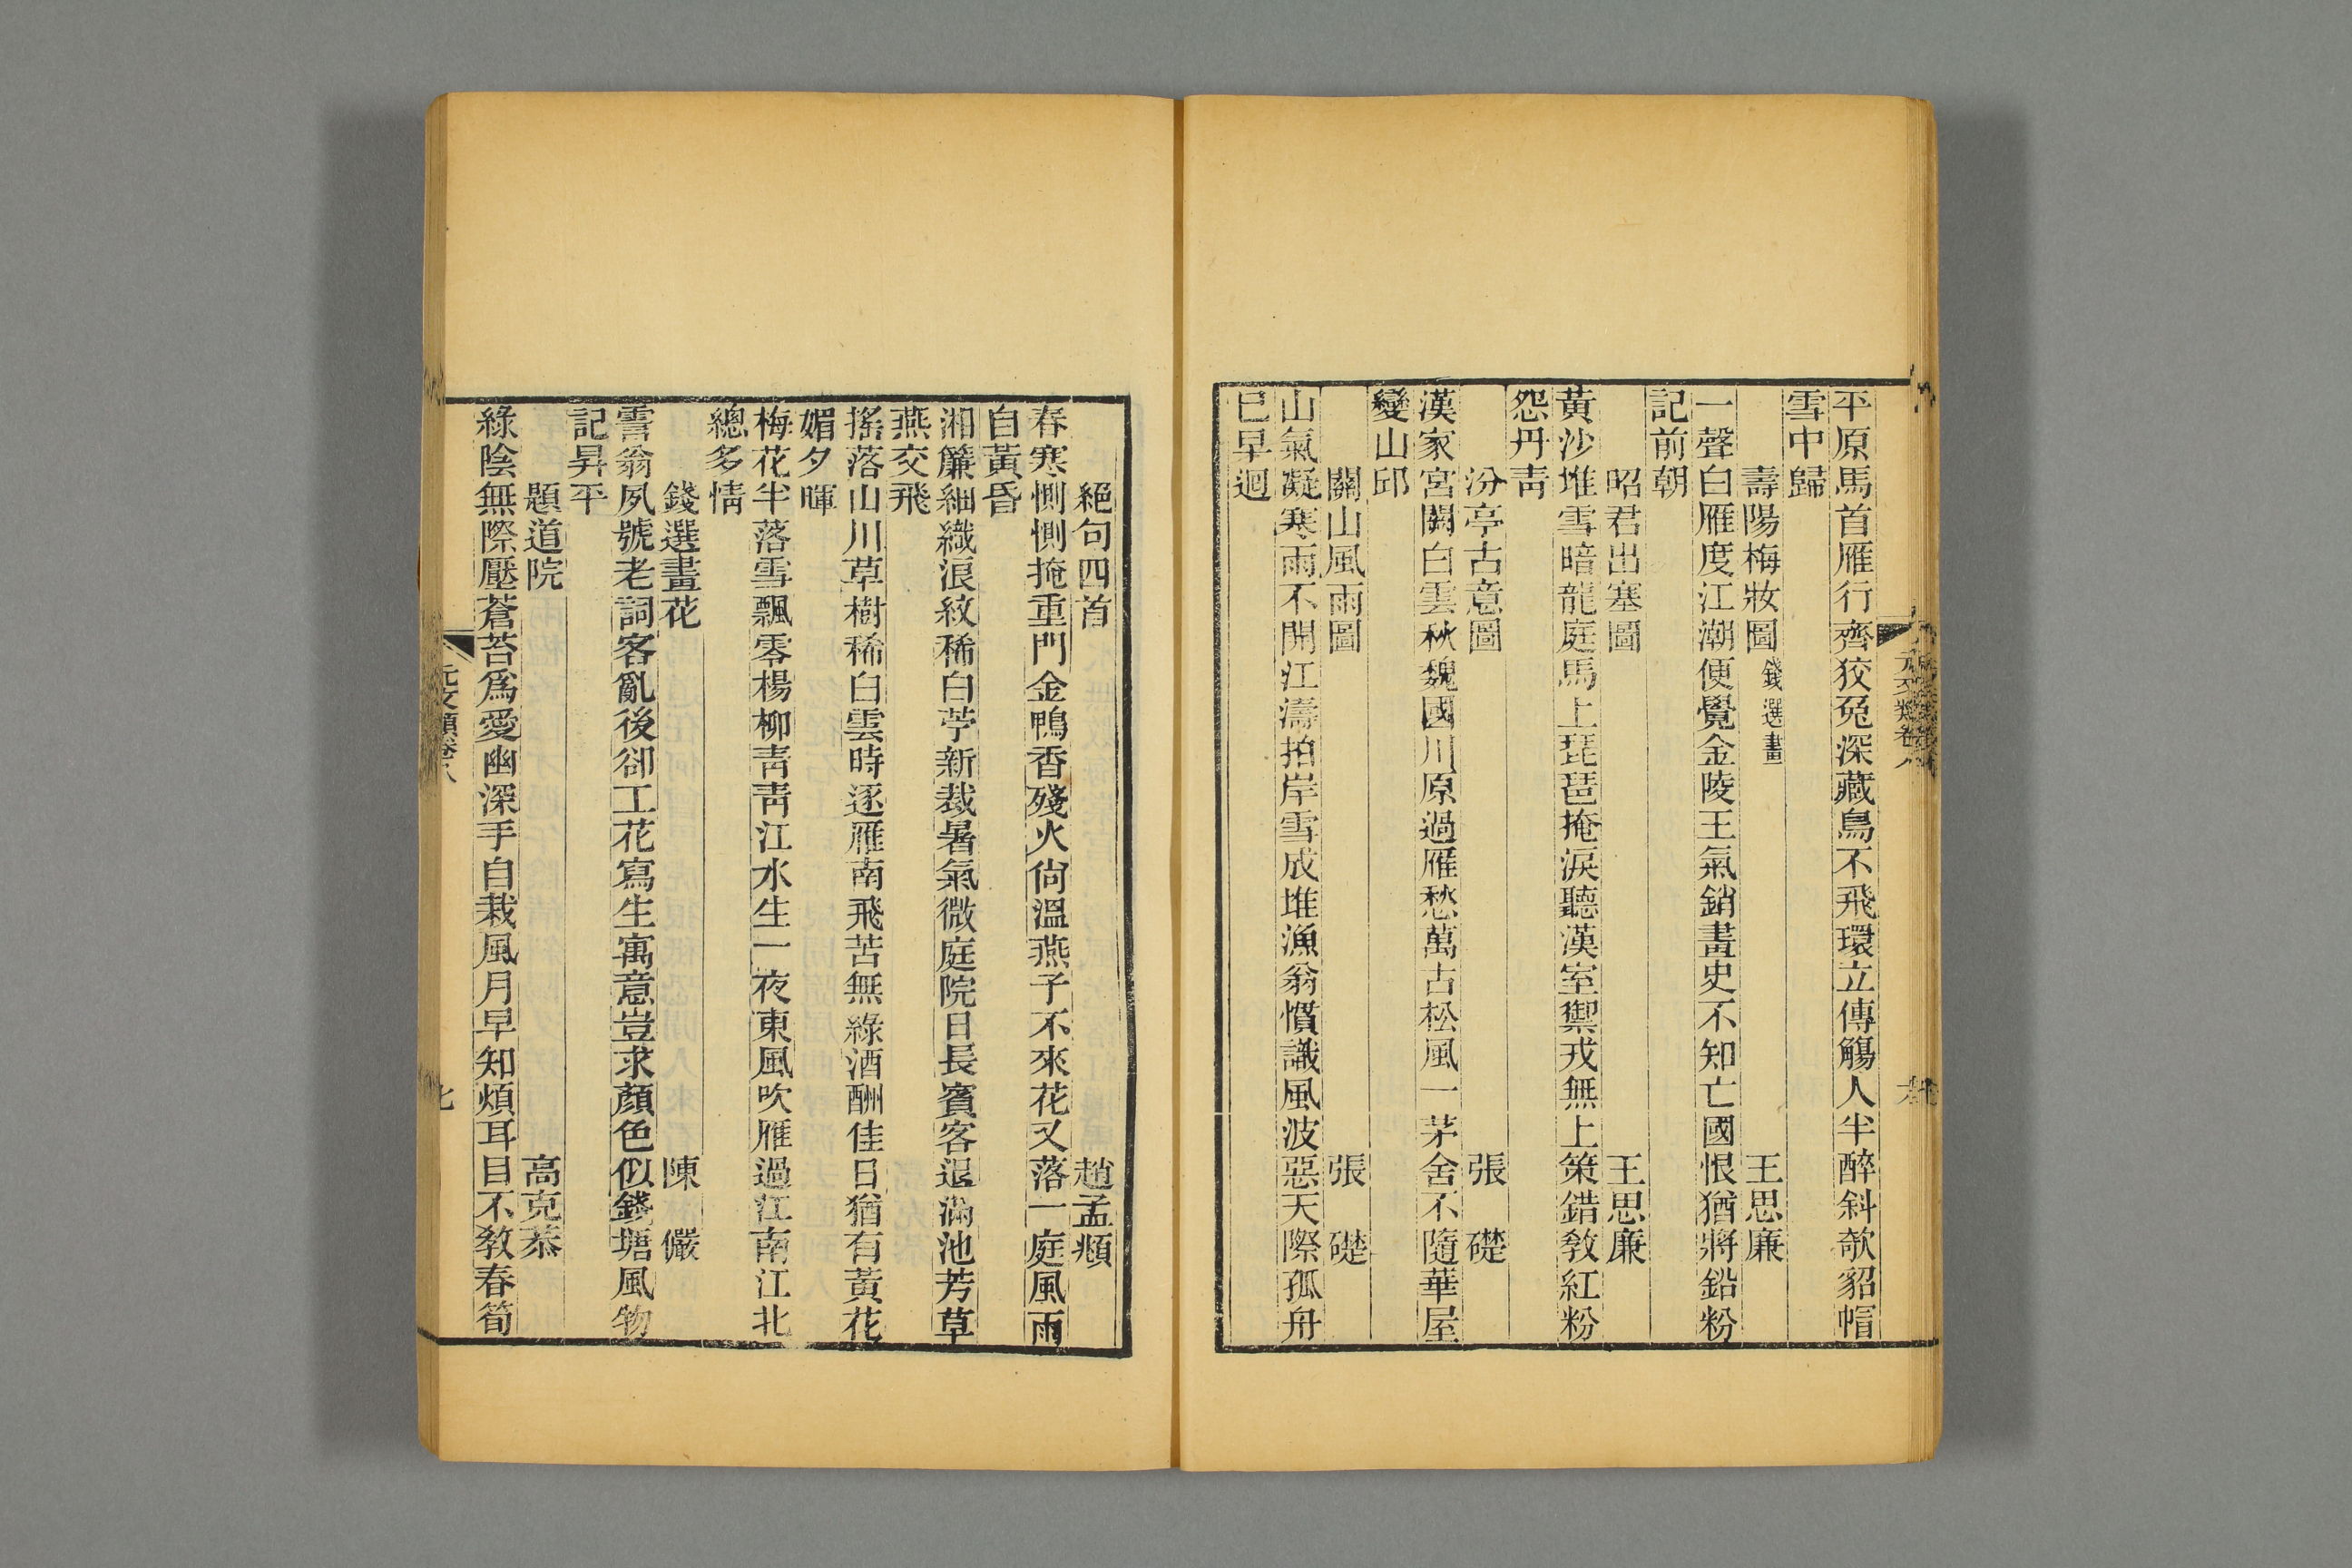 平原馬首雁行齊狡兔深藏鳥不飛環立傳觴人半醉斜欹貂帽
雪中歸
壽陽梅妝圖 錢選畫 王思廉
一聲白雁度江潮便覺金陵王氣銷畫史不知亡國恨猶將鉛粉
記前朝
昭君出塞圖 王思廉
黃沙堆雪暗龍庭馬上琵琶掩淚聽漢室禦戎無上策錯教紅粉
怨丹靑
汾亭古意圖 張礎
漢家宮闕白雲秋魏國川原過雁愁萬古松風一茅舍不隨華屋
變山邱
關山風雨圖 張礎
山氣凝寒雨不開江濤拍岸雪成堆漁翁慣識風波惡天際孤舟
已早迴
元文類卷八
絕句四首 趙孟頫
春寒惻惻掩重門金鴨香殘火尙溫燕子不來花又落一庭風雨
自黃昏
湘簾細織浪紋稀白苧新裁暑氣微庭院日長賓客退滿池芳草
燕交飛
搖落山川草樹稀白雲時逐雁南飛苦無綠酒酬佳日猶有黃花
媚夕暉
梅花半落雪飄零楊柳靑靑江水生一夜東風吹雁過江南江北
總多情
錢選畫花 陳儼
霅翁夙號老詞客亂後卻工花寫生寓意豈求顏色似錢塘風物
記昇平
題道院 高克恭
綠陰無際壓蒼苔爲愛幽深手自栽風月早知煩耳目不教春筍
元文類卷八